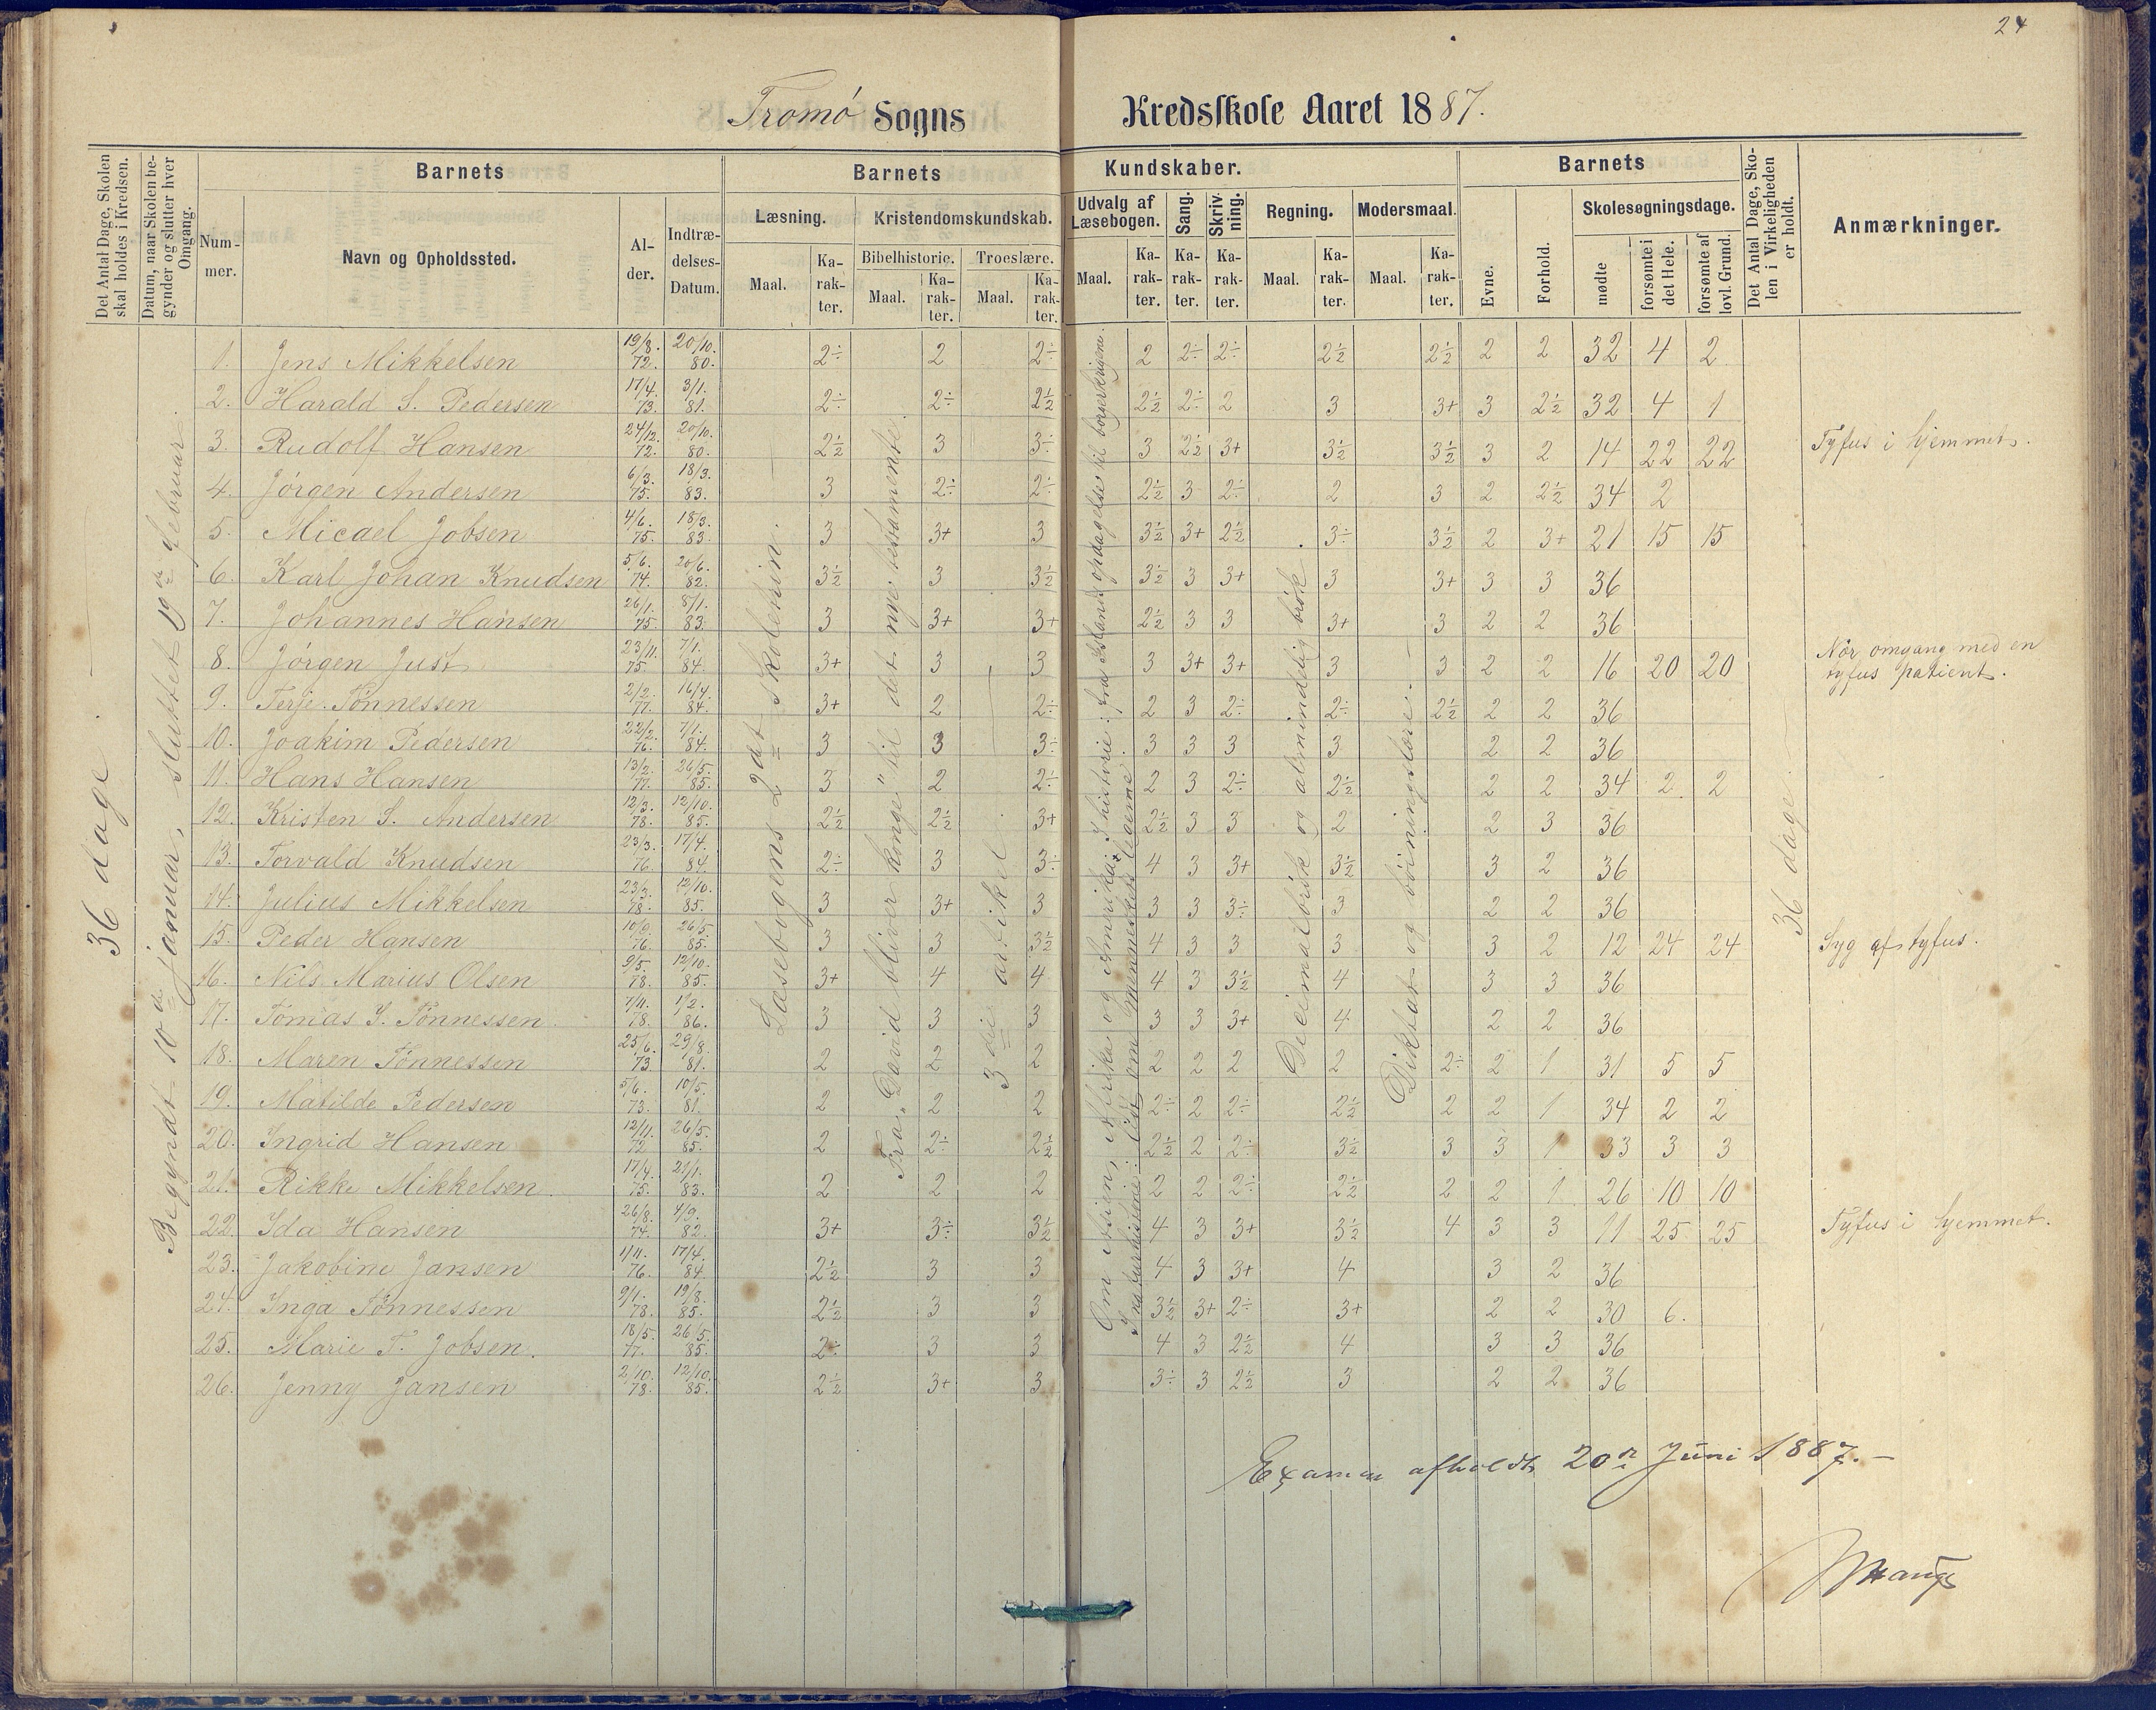 24
Tromö Sogns Kredsskole Aaret 1887.
Det Antal Dage, Skolen skal holdes i Kredsen.
Datum, naar Skolen begynder og slutter hver Omgang.
Barnets
Nummer.
Navn og Opholdssted.
Alder.
Indtrædelses-Datum.
Barnets Kundskaber.
Læsning.
Kristendomskundskab.
Bibelhistorie.
Troeslære.
Udvalg af Læsebogen.
Sang.
Skrivning.
Regning.
Modersmaal.
Maal.
Karakter.
Barnets
Evne.
Forhold.
Skolesøgningsdage.
mødte
forsømte i det Hele.
forsømte af lovl. Grund.
Det Antal Dage, Skolen i Virkeligheden er holdt.
Anmærkninger.
36 dage.
Begyndt 10de januar, sluttet 19de februar.
Læsebogens 2det skoletrin.
Fra „David bliver konge" til det nye testamente
3die artikel
Om Asien, Afrika og Amerika; I historie: fra Islands opdagelse til borgerkrigene.
I naturhistorie: lidt om menneskets legeme
Decimalbrök og almindelig brök
Diktat og böiningslære.
36 dage.
1. Jens Mikkelsen 19/8. 72. 20/10. 80. 2÷ 2 2÷ 2 2÷ 2÷ 2½ 2½ 2 2 32 4 2
2. Harald S. Pedersen 17/4. 73. 3/1. 81. 2÷ 2÷ 2½ 2½ 2÷ 2 3 3+ 3 2½ 32 4 1
3. Rudolf Hansen 24/12. 72. 20/10. 80. 2½ 3 3÷ 3 2½ 3+ 3½ 3½ 3 2 14 22 22 Tyfus i hjemmet.
4. Jörgen Andersen 6/3. 75. 18/3. 83. 3 2÷ 2÷ 2½ 3 2÷ 2 3 2 2½ 34 2
5. Micael Jobsen 4/6. 75. 18/3. 83. 3 3+ 3 3½ 3+ 2½ 3÷ 3½ 2 3+ 21 15 15
6. Karl Johan Knudsen 5/6. 74. 20/6. 82. 3½ 3 3½ 3½ 3 3+ 3 3+ 3 3 36
7. Johannes Hansen 26/1. 75. 8/1. 83. 3 3+ 3+ 2½ 3 3 3+ 3 2 2 36
8. Jörgen Just 23/11. 75. 7/1. 84. 3+ 3 3 3 3+ 3+ 3 3 2 2 16 20 20 Nær omgang med en tyfus patient.
9. Terje Tönnessen 2/2. 77. 16/4. 84. 3+ 2 2÷ 2 3 2÷ 2÷ 2½ 2 2 36
10. Joakim Pedersen 22/2. 76. 7/1. 84. 3 3 3÷ 3 3 3 3 2 2 36
11. Hans Hansen 13/2. 77. 26/5. 85. 3 2 2÷ 2 3 2÷ 2½ 2 2 34 2 2
12. Kristen S. Andersen 12/3. 78. 12/10. 85. 2½ 2½ 3+ 2½ 3 3 2 2 3 36
13. Torvald Knudsen 23/3. 76 17/4. 84. 2÷ 3 3÷ 4 3 3+ 3½ 3 2 36
14. Julius Mikkelsen 23/3. 78. 12/10. 85. 3 3+ 3 3 3 3÷ 3 2 2 36
15. Peder Hansen 10/9. 76. 26/5. 85. 3 3 3½ 4 3 3 3 3 2 12 24 24 Syg af tyfus.
16. Nils Marius Olsen 9/5. 78. 12/10. 85. 3+ 4 4 4 3 3½ 4 3 3 36
17. Tomas S. Tönnessen. 7/11. 78. 1/2. 86. 3 3 3 3 3 3+ 4 2 2 36
18. Maren Tönnessen 25/6. 73 29/8. 81. 2 2 2 2 2 2 2 2÷ 2 1 31 5 5
19. Matilde Pedersen 5/6. 73. 10/5. 81. 2 2 2 2÷ 2 2÷ 2½ 2 2 1 34 2 2
20. Ingrid Hansen 12/11. 72 26/5. 85. 2 2÷ 2½ 2½ 2 2÷ 3½ 3 3 1 33 3 3
21. Rikke Mikkelsen. 17/4. 75. 21/1. 83. 2 2 2 2 2 2÷ 2½ 2 2 1 26 10 10
22. Ida Hansen 26/8. 74. 4/9. 82. 3+ 3÷ 3½ 4 3 3+ 3½ 4 3 3 11 25 25 Tyfus i hjemmet.
23. Jakobine Jansen 1/11. 76. 17/4. 84. 2½ 3 3 4 3 3+ 4 3 2 36
24. Inga Tönnessen 9/1. 78. 19/8. 85. 2½ 3 3 3½ 3+ 2÷ 3+ 2 2 30 6.
25. Marie T. Jobsen. 18/5. 77. 26/5. 85. 2÷ 3 3 4 3 2½ 4 3 3 36
26. Jenny Jansen 2/10. 78. 12/10. 85. 2½ 3+ 3 3÷ 3 2½ 3 2 2 36
Examen afholdt 20de Juni 1887.—